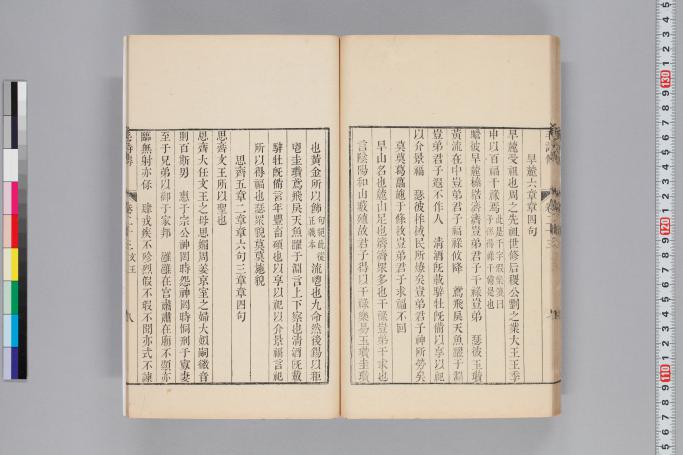 旱麓六章章四句
旱麓受祖也周之先祖世修后稷公劉之業大王王季
申以百福干祿焉
瞻彼旱麓榛楛濟濟豈弟君子干祿豈弟　瑟彼玉瓚
黃流在中豈弟君子福祿攸降　鳶飛戾天魚躍于淵
豈弟君子遐不作人　清酒旣載騂牡旣備以享以祀
以介景福　瑟彼柞棫民所燎矣豈弟君子神所勞矣
莫莫葛藟施于條枚豈弟君子求福不回
旱山名也麓山足也濟濟衆多也干祿豈弟干求也
言陰陽和山藪殖故君子得以干祿樂易玉瓚圭瓚
也黃金所以飾
流鬯也九命然後錫以秬
鬯圭瓚鳶飛戾天魚躍于淵言上下察也清酒旣載
騂牡旣備言年豐畜碩也以享以祀以介景福言祀
所以得福也瑟衆貌莫莫施貌
思齊五章二章章六句三章章四句
思齊文王所以聖也
思齊大任文王之母思媚周姜京室之婦大姒嗣徽音
則百斯男　惠于宗公神罔時怨神罔時恫刑于寡妻
至于兄弟以御于家邦　雝雝在宮肅肅在廟不顯亦
臨無射亦保　肆戎疾不殄烈假不瑕不聞亦式不諫